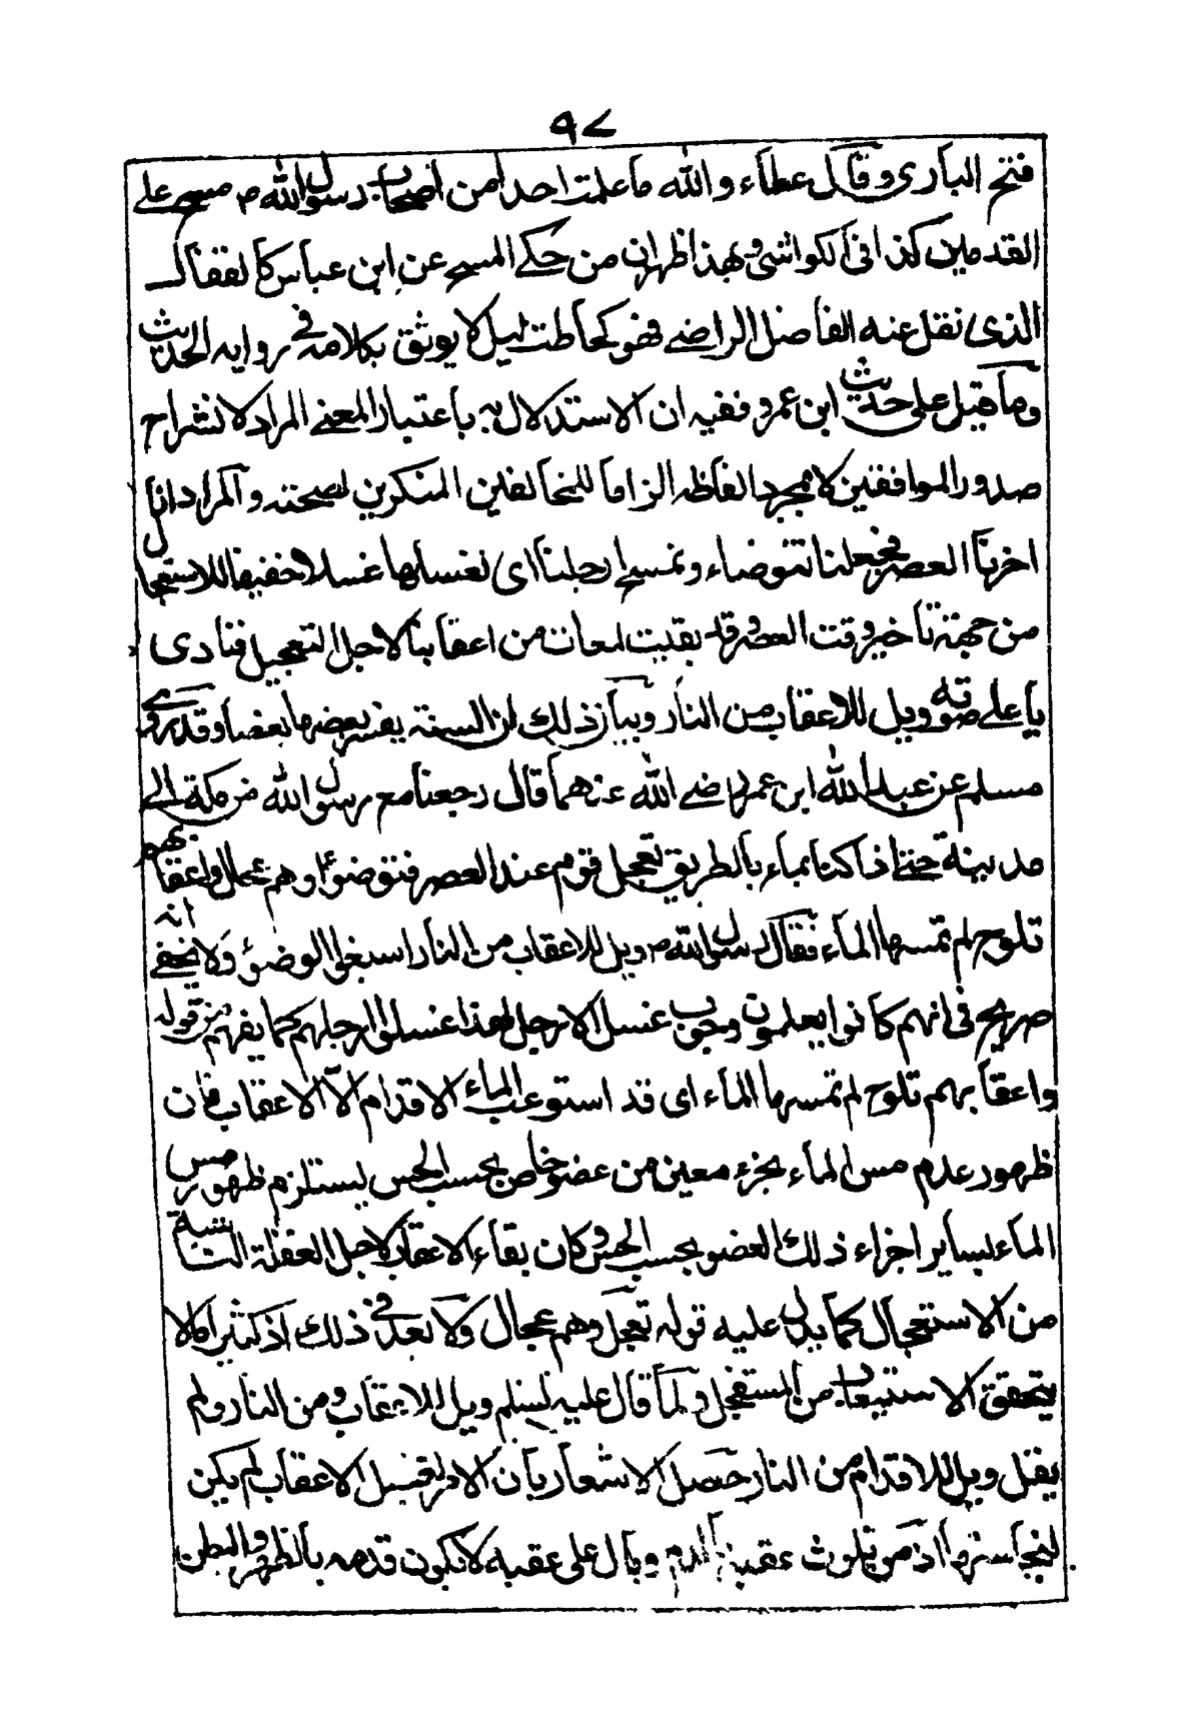 ٩٧
فتح الباری وقال عطاء والله ما علمت احدا من اصحاب رسول الله ص مسح علی
القدمین کذا فی الکواشی وبهذا ظهر ان من حکے المسح عن ابن عباس کالقفال
الذی نقل عنه الفاضل الراضے فهو کحاطب لیل لا یوثق بکلامه فی روایه الحدیث
وما قیل علی حدیث ابن عمرو ففیه ان الاستدلال به باعتبار المعنے المراد لانشراح
صدور الموافقین لا بمجرد الفاظه الزاما للمخالفین المنکرین لصحته والمراد انا
اخرنا العصر فجعلنا نتوضاء ونمسح ارجلنا ای نغسلها غسلا خفیفا للاستعجال
من جهة تاخیر وقت العصر وقد بقیت لمعات من اعقابنا لاجل التعجیل فنادی
باعلے صوته ویل للاعقاب من النار وبیان ذلك لان السنة یفسر بعضها بعضا وقد روی
مسلم عن عبد الله ابن عمر رضے الله عنهما قال رجعنا مع رسول الله من مکة الے
مدینة حتے اذا کنا بماء بالطریق تعجل قوم عند العصر فتوضؤا وهم عجال واعقابهم
تلوح لم تمسها الماء فقال رسول الله ص ویل للاعقاب من النار اسبغوا الوضوء ولا یخفے انه
صریح فی انهم کانوا یعلمون وجوب غسل الارجل لهذا غسلوا ارجلهم کما یفهم من قوله
واعقابهم تلوح لم تمسها الماء ای قد استوعب الماء الاقدام الّا الاعقاب فان
ظهور عدم مس الماء بجزء معین من عضو خاص بحسب الحس یستلزم ظهور مس
الماء بسایر اجزاء ذلك العضو بحسب الحس وکان بقاء الاعقاب لاجل الغفلة الناشیة
من الاستعجال کما یدل علیه قوله تعجل وهم عجال ولا بعد فی ذلك اذ کثیرا ما لا
یتحقق الاستیعاب من المستعجل ولما قال علیه السلم ویل للاعقاب من النار ولم
یقل ویل للاقدام من النار حصل الاشعار بان الامر بغسل الاعقاب لم یکن
لنجاستها اذ من تلوث عقبه بالدم وبال علی عقبه لا تکون قدمه بالظهر والبطن